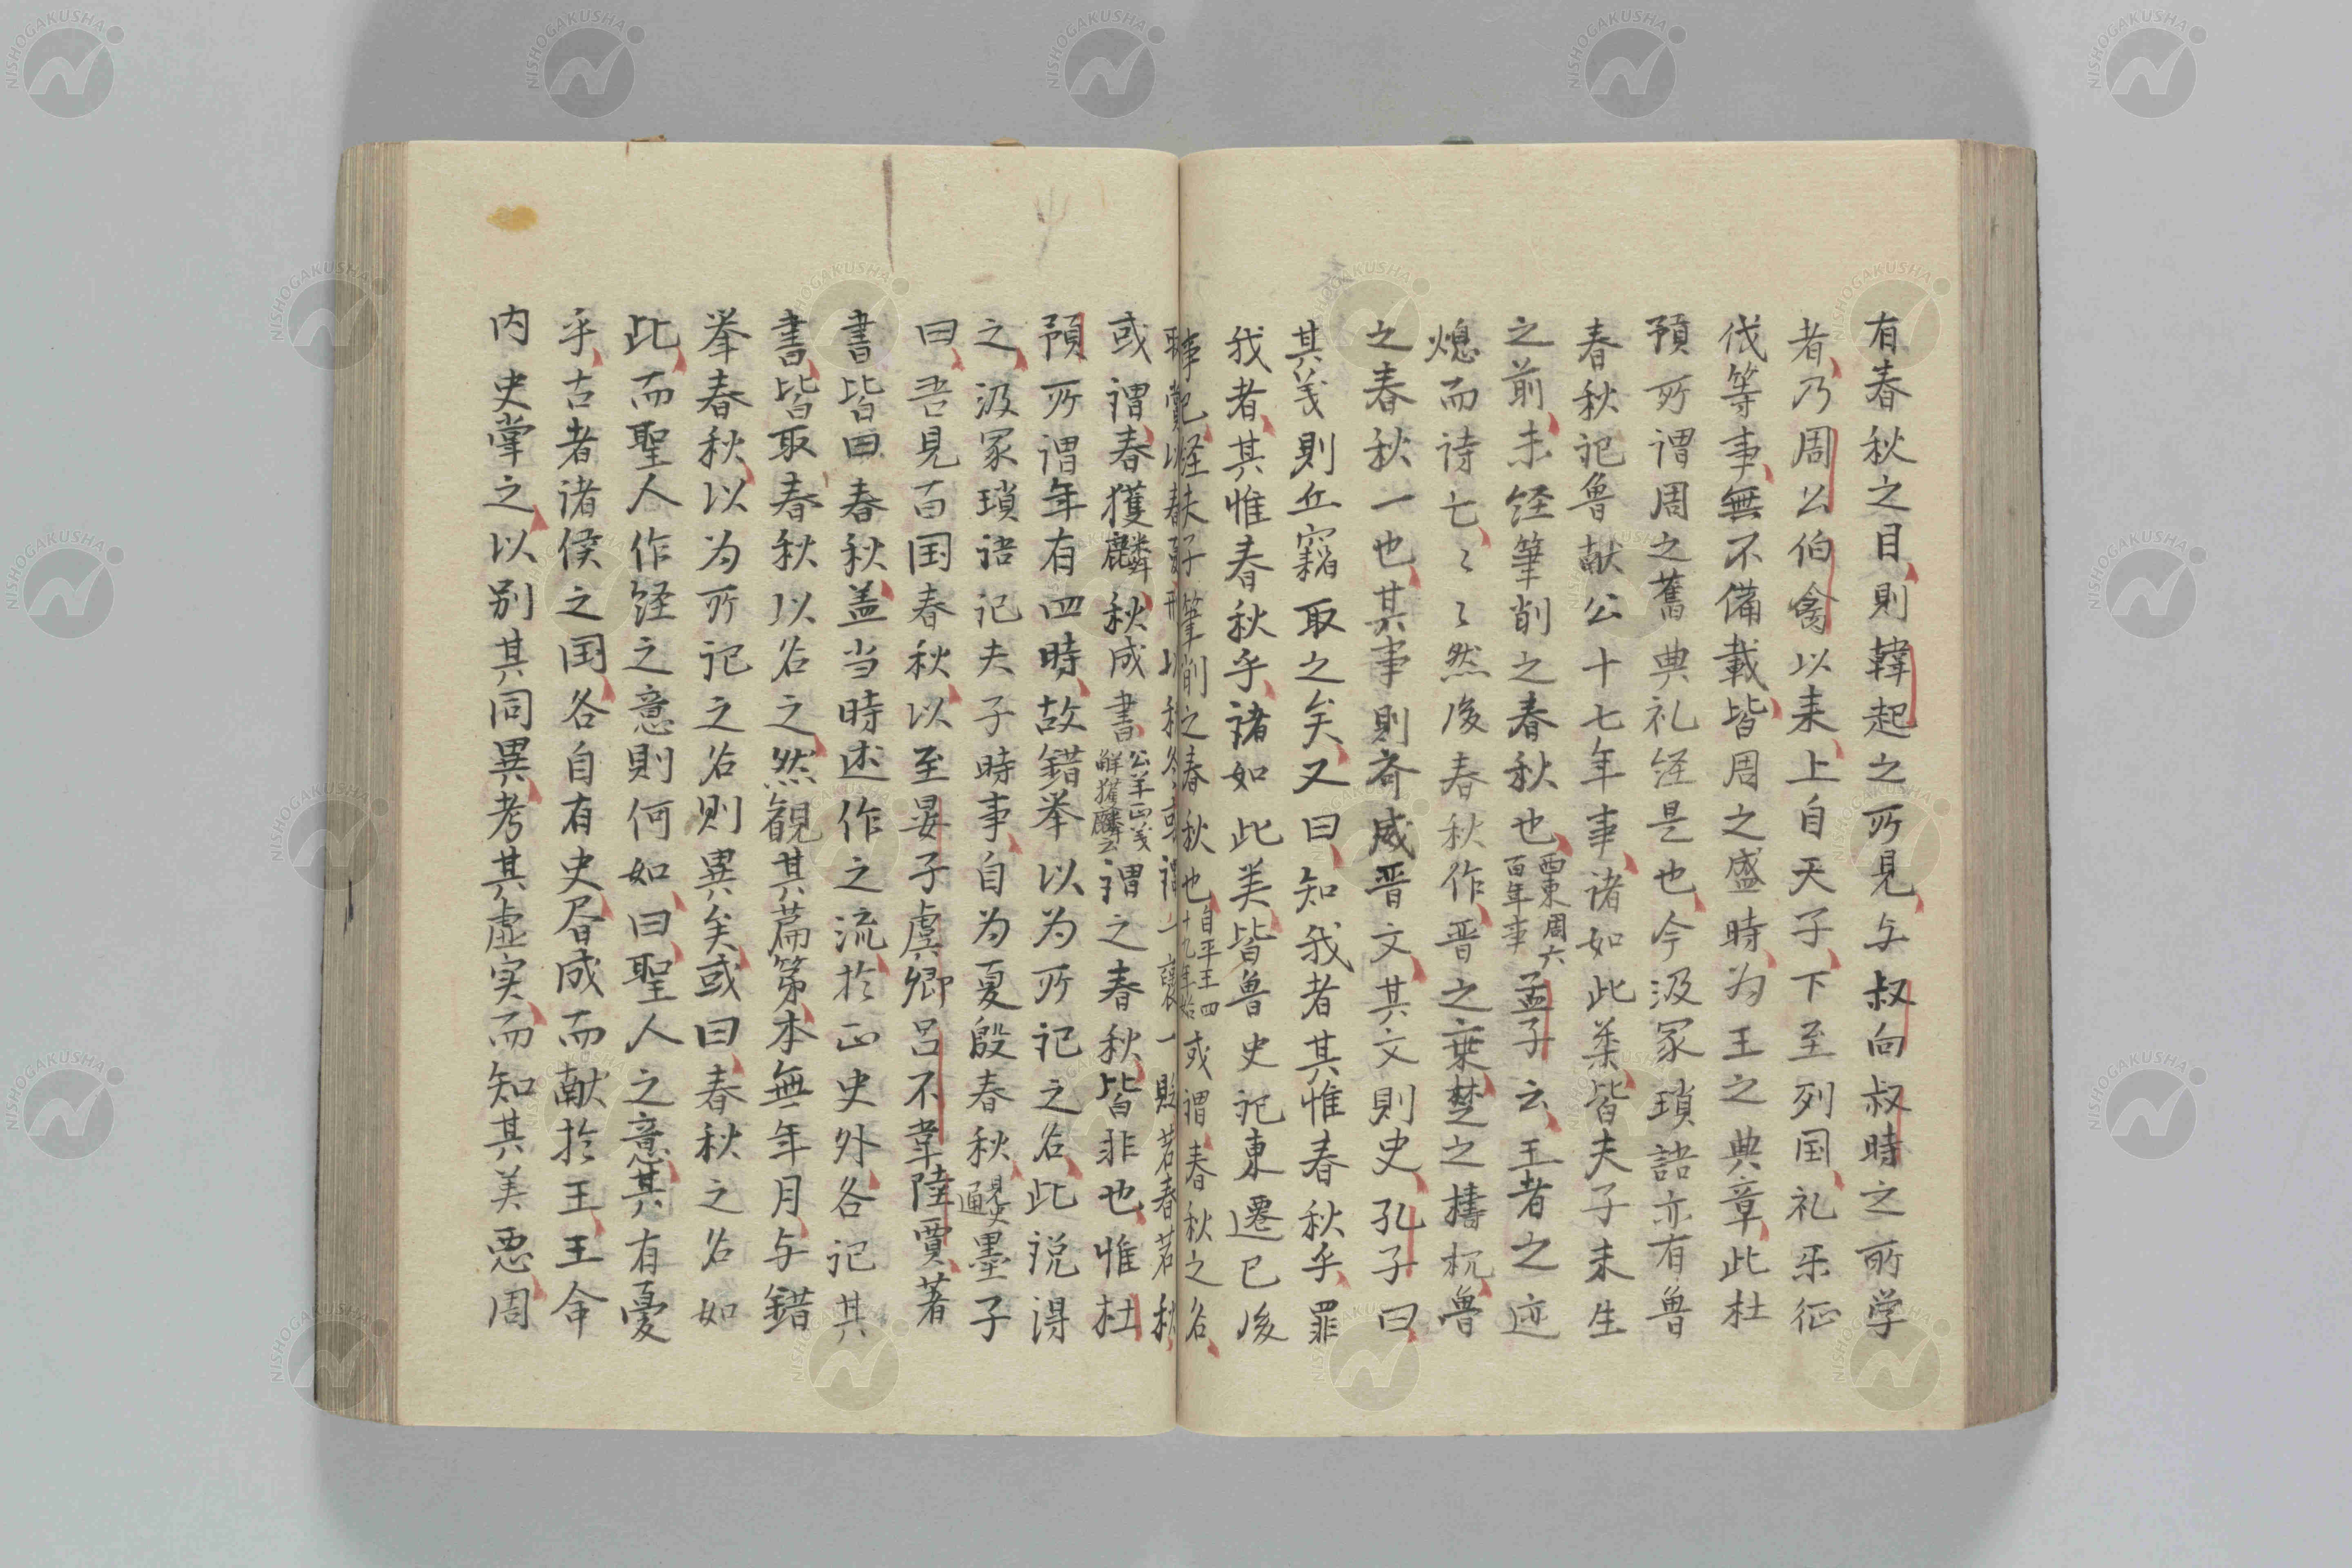 有春秋之目則韓起之所見与叔向叔時之所学
者乃周公伯禽以来上自天子下至列国礼乐征
伐等事無不備載皆周之盛時为王之典章此杜
預所謂周之舊典礼経是也今汲冢瑣語亦有魯
春秋記魯献公十七年事诸如此葉皆夫子未生
之前未経筆削之春秋也西東周六百年事孟子云王者之迹
熄而诗亡〻〻然後春秋作晋之乗楚之檮杌魯
之春秋一也其事則斉威晋文其文則史孔子曰
其義則丘竊取之矣又曰知我者其惟春秋乎罪
我者其惟春秋乎诸如此美皆魯史記東遷已後
事経夫子筆削之春秋也自平王四十九年始或谓春秋之名
賞以春夏刑以秋冬或謂一褒一貶若春若秋
或谓春獲麟秋成書公羊正義解獲麟云谓之春秋皆非也惟杜
預所谓年有四時故錯举以为所记之名此说得
之汲冢瑣语记夫子時事自为夏殷春秋見史通墨子
曰吾見百国春秋以至晏子虞卿呂不韋陸賈著
書皆曰春秋盖当時述作之流於正史外各记其
書皆取春秋以名之然観其篇第本無年月与錯
举春秋以为所记之名則異矣或曰春秋之名如
此而聖人作経之意則何如曰聖人之意其有憂
乎古者诸侯之国各自有史昏成而献於王王命
内史掌之以别其同異考其虚実而知其美悪周